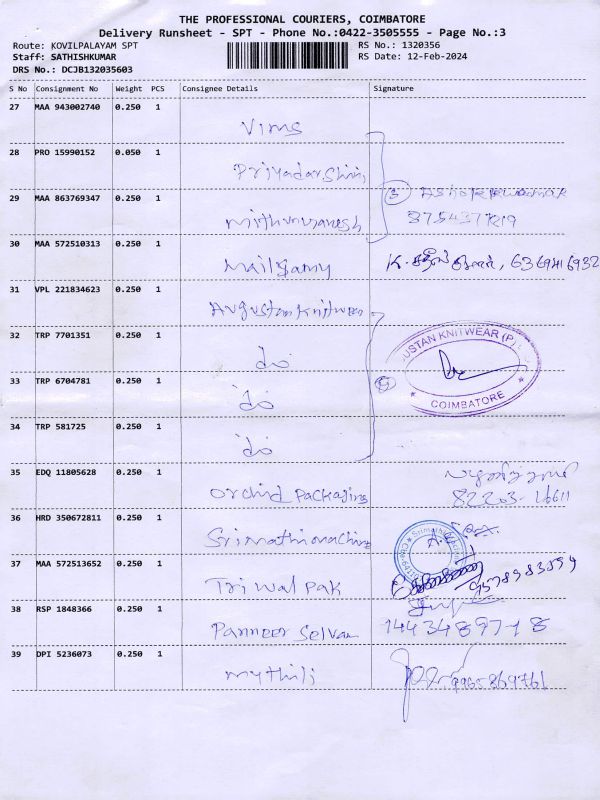 THE PROFESSIONAL COURIERS, COIMBATORE
Delivery Runsheet - SPT - Phone No.:0422-3505555 - Page No.:3
Route: KOVILPALAYAM SPT
RS No.: 1320356
Staff: SATHISHKUMAR
RS Date: 12-Feb-2024
DRS No.: DCJB132035603
S No Consignment No Weight PCS Consignee Details Signature
27 MAA 943002740 0.250 1
Vims
28 PRO 15990152 0.050 1
Priyadarshini
29 MAA 863769347 0.250 1
3
30 MAA 572510313 0.250 1
31 VPL 221834623 0.250 1
Augustan Knitwear
32 TRP 7701351 0.250 1
do
USTAN KNITWEAR (P)
33 TRP 6704781 0.250 1
do
COIMBATORE
34 TRP 581725 0.250 1
do
35 EDQ 11805628 0.250 1
Orchid Packaging
36 HRD 350672811 0.250 1
37 MAA 572513652 0.250 1
Tri Wal Pak
38 RSP 1848366 0.250 1
Panneer Selvam
39 DPI 5236073 0.250 1
Mythili